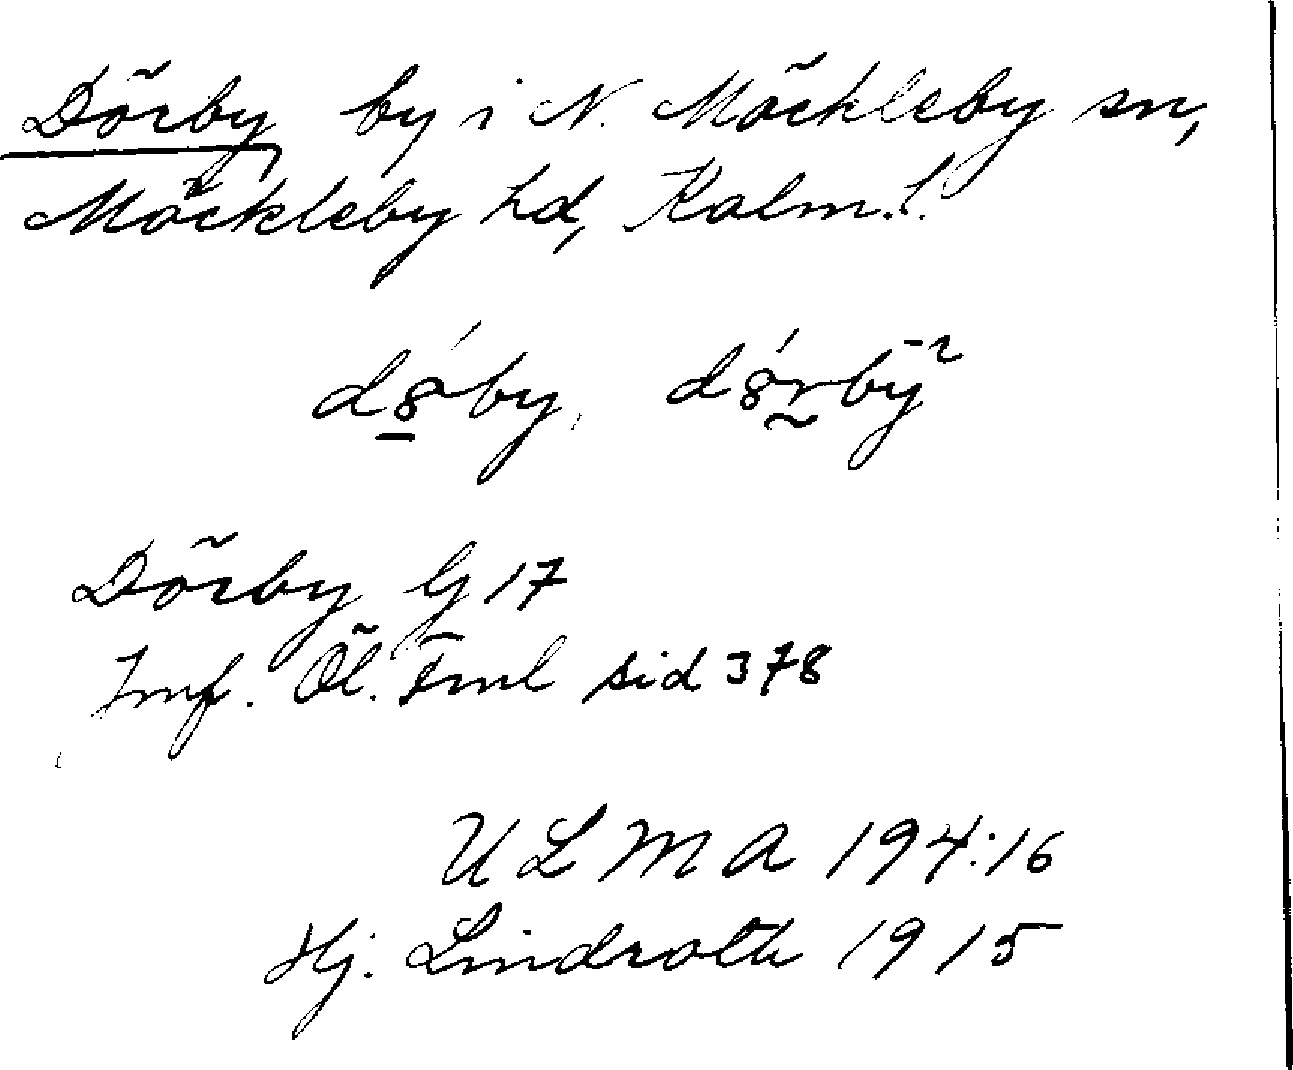 Dörby by i N. Möckleby sn,
Möckleby hd, Kalm. l.
Dörby G 17
Jmf. Öl. Fml sid 378
ULMA 194:16
Hj. Lindroth 1915